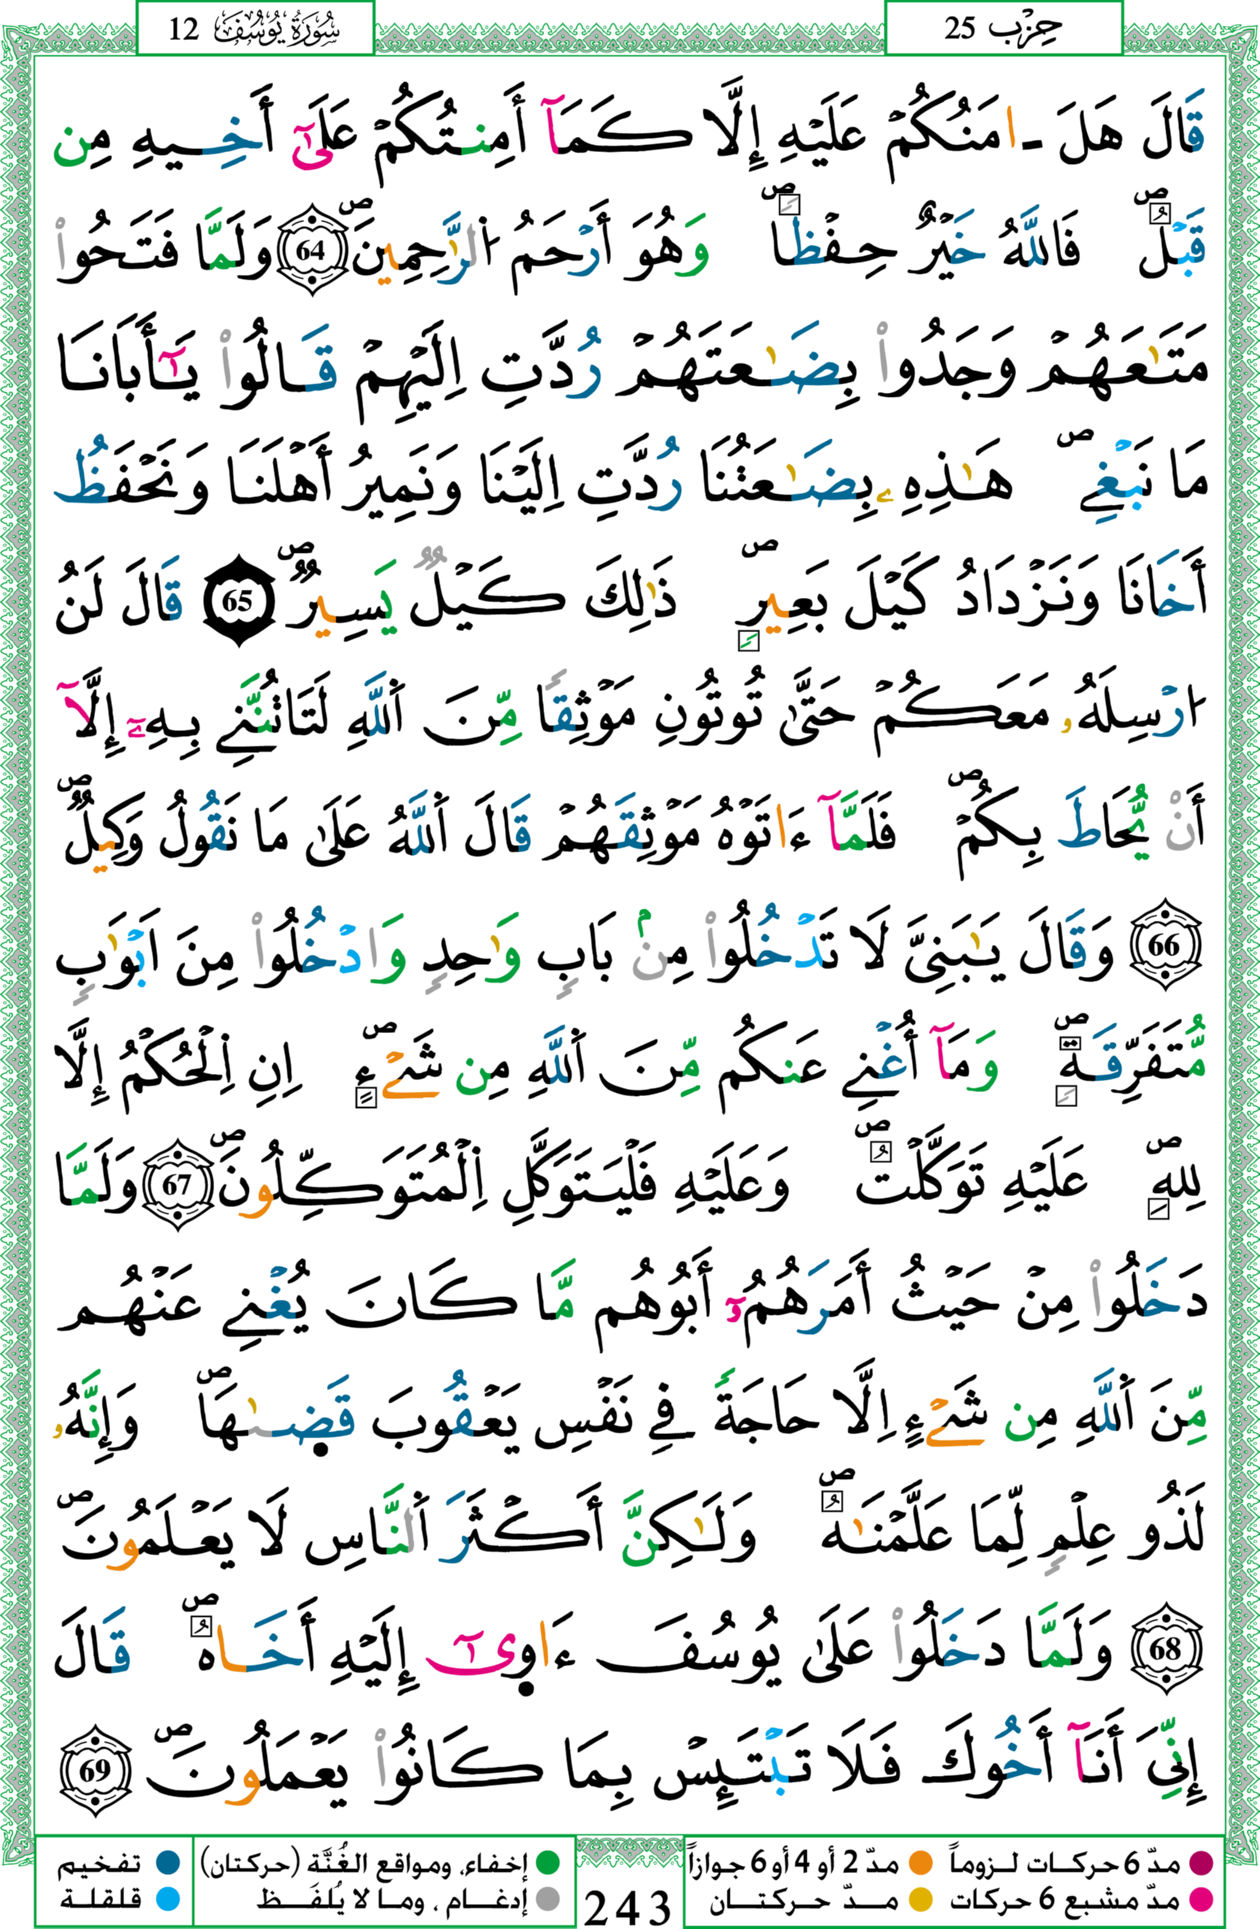 حِزْب 25
سُورَةُ يُوسُفَ 12
قَالَ هَلَ ـ امَنُكُمْ عَلَيْهِ إِلَّا كَمَآ أَمِنتُكُمْ عَلَىٰٓ أَخِيهِ مِن
قَبْلُ ۖ فَاللَّهُ خَيْرٌ حِفْظاً ۖ وَهُوَ أَرْحَمُ اُ۬لرَّٰحِمِينَ ۖ 64 وَلَمَّا فَتَحُواْ
مَتَٰعَهُمْ وَجَدُواْ بِضَٰعَتَهُمْ رُدَّتِ اِلَيْهِمْ قَالُواْ يَٰٓأَبَانَا
مَا نَبْغِے ۖ هَٰذِهِۦ بِضَٰعَتُنَا رُدَّتِ اِلَيْنَا وَنَمِيرُ أَهْلَنَا وَنَحْفَظُ
أَخَانَا وَنَزْدَادُ كَيْلَ بَعِيرٍ ۖ ذَٰلِكَ كَيْلٌ يَسِيرٌ ۖ 65 قَالَ لَنُ
ا۟رْسِلَهُۥ مَعَكُمْ حَتَّىٰ تُوتُونِ مَوْثِقاً مِّنَ اَ۬للَّهِ لَتَاتُنَّنِے بِهِۦٓ إِلَّآ
أَنْ يُّحَاطَ بِكُمْ ۖ فَلَمَّآ ءَاتَوْهُ مَوْثِقَهُمْ قَالَ اَ۬للَّهُ عَلَىٰ مَا نَقُولُ وَكِيلٌ ۖ
66 وَقَالَ يَٰبَنِىَّ لَا تَدْخُلُواْ مِنۢ بَابٍ وَٰحِدٍ وَادْخُلُواْ مِنَ اَبْوَٰبٍ
مُّتَفَرِّقَةٍ ۖ وَمَآ أُغْنِے عَنكُم مِّنَ اَ۬للَّهِ مِن شَےْءٍ ۖ اِنِ اِ۬لْحُكْمُ إِلَّا
لِلهِ ۖ عَلَيْهِ تَوَكَّلْتُ ۖ وَعَلَيْهِ فَلْيَتَوَكَّلِ اِ۬لْمُتَوَكِّلُونَ ۖ 67 وَلَمَّا
دَخَلُواْ مِنْ حَيْثُ أَمَرَهُمُۥٓ أَبُوهُم مَّا كَانَ يُغْنِے عَنْهُم
مِّنَ اَ۬للَّهِ مِن شَےْءٍ اِلَّا حَاجَةً فِے نَفْسِ يَعْقُوبَ قَضَىٰهَا ۖ وَإِنَّهُۥ
لَذُو عِلْمٍ لِّمَا عَلَّمْنَٰهُ ۖ وَلَٰكِنَّ أَكْثَرَ اَ۬لنَّاسِ لَا يَعْلَمُونَ ۖ
68 وَلَمَّا دَخَلُواْ عَلَىٰ يُوسُفَ ءَاوِىٰٓ إِلَيْهِ أَخَاهُ ۖ قَالَ
إِنِّىَ أَنَآ أَخُوكَ فَلَا تَبْتَئِسْ بِمَا كَانُواْ يَعْمَلُونَ ۖ 69
مدّ 6 حركات لـزوماً مدّ 2 أو 4 أو 6 جوازاً
مدّ مشبع 6 حركات مـدّ حـركتـان
243
إخفاء، ومواقع الغُنَّة (حركتان) تفخيم
إدغـام ، ومـا لا يُلفَـظ قلقلة